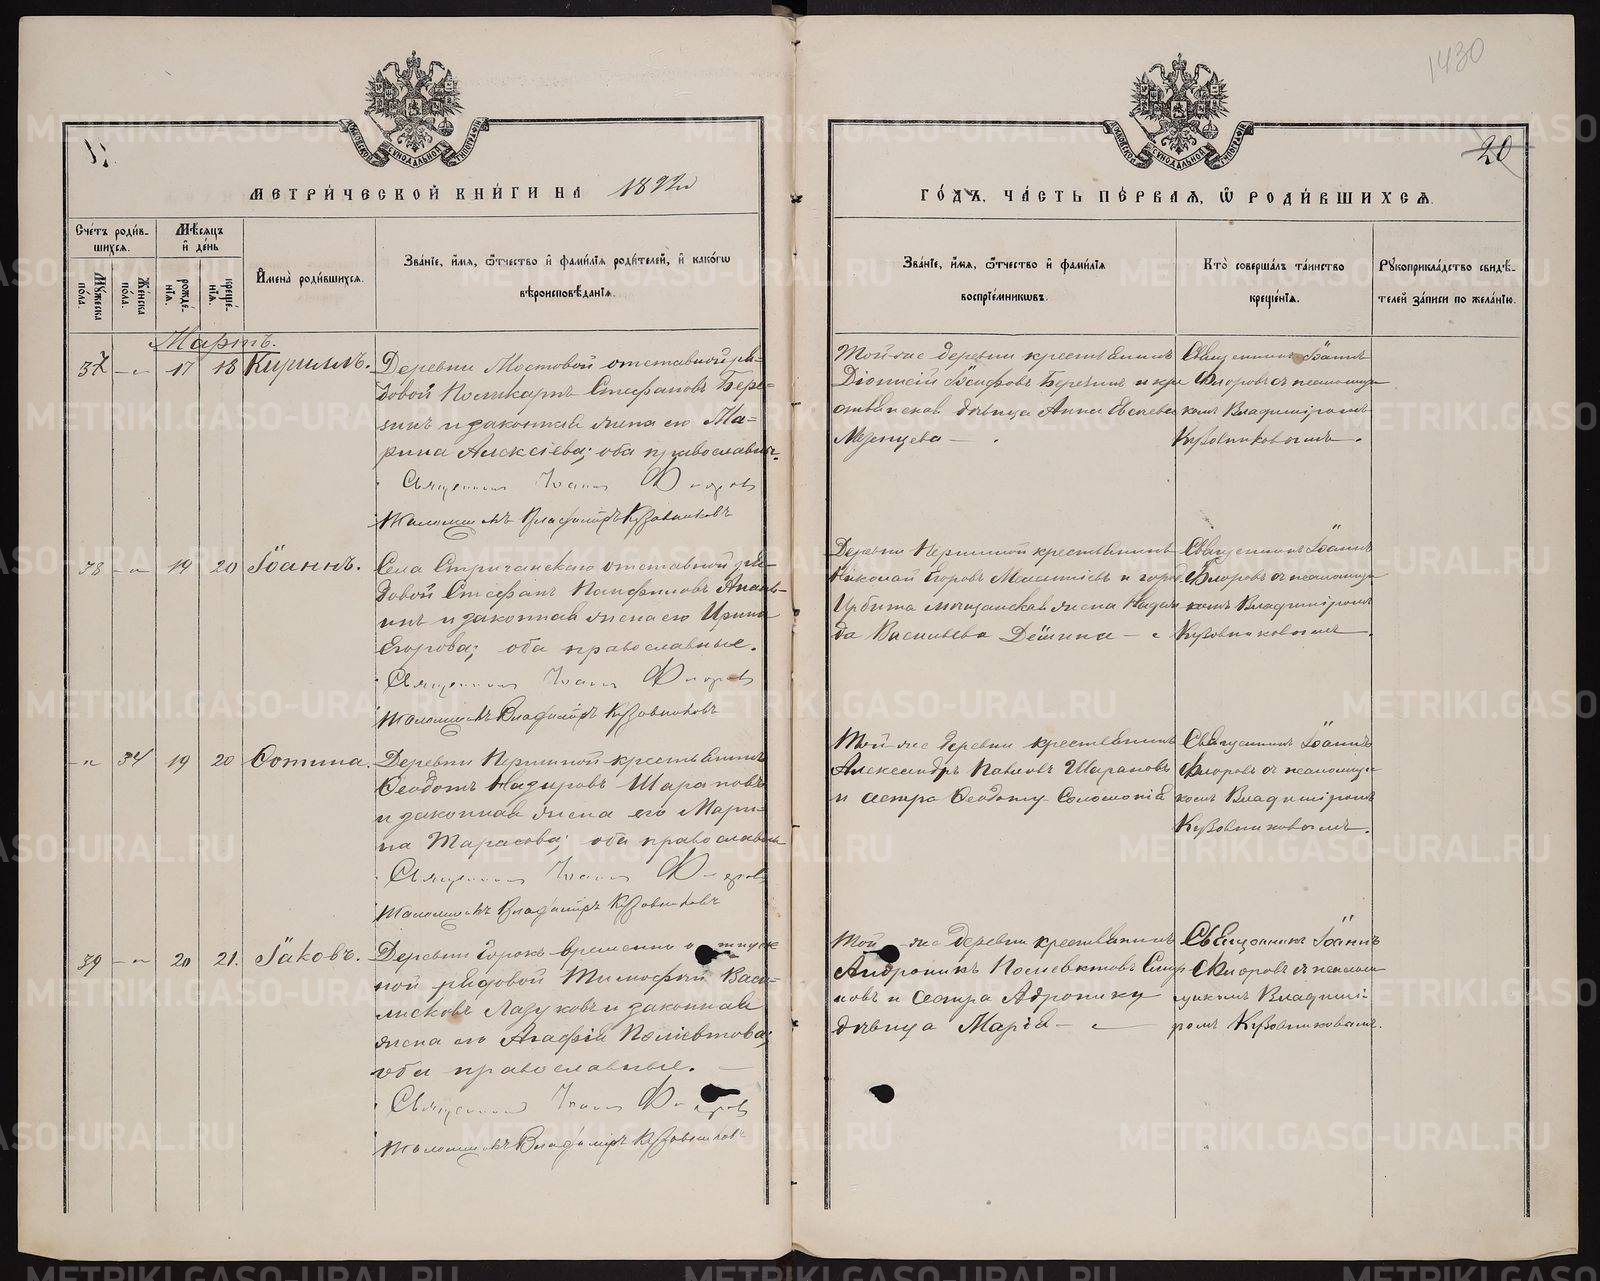 1430
20
МОСКОВСКОЙ СѴНОДАЛЬНОЙ ТИПОГРАФІИ
МОСКОВСКОЙ СѴНОДАЛЬНОЙ ТИПОГРАФІИ
МЕТРИ́ЧЕСКОЙ КНИ́ГИ НА 1892й
ГО́ДЪ, ЧА́СТЬ ПЕ́РВАЯ, Ѡ҆ РОДИ́ВШИХСЯ.
Сче́тъ роди́в-
шихся.
Мѣ́сяцъ
и҆ де́нь
Му́жеска
по́ла.
Же́нска
по́ла.
рожде́-
нїя.
креще́-
нїя.
И҆мена̀ роди́вшихся.
Зва́нїе, и҆́мя, ѻ҆́тчество и҆ фами́лїя роди́телей, и҆ како́гѡ
вѣроисповѣ́данїя.
Зва́нїе, и҆́мя, ѻ҆́тчество и҆ фами́лїя
воспрїе́мникѡвъ.
Кто̀ соверша́лъ та́инство
креще́нїя.
Рꙋкоприкла́дство свидѣ́-
телей за́писи по жела́нїю.
Мартъ.
37 – „ 17 18 Кириллъ.
Деревни Мостовой отставной ря-
довой Поликарпъ Стефановъ Бере-
зинъ и законная жена его Ма-
рина Алексіева; оба православны.
Священникъ Іоаннъ Флоровъ
Псаломщикъ Владиміръ Кузовниковъ
Той-же деревни крестьянинъ
Діонисій Іосифовъ Березинъ и кре
стьянская дѣвица Анна Евсіева
Мезенцева
Священникъ Іоаннъ
Флоровъ съ псаломщи-
комъ Владиміромъ
Кузовниковымъ.
38 – „ 19 20 Іоаннъ.
Села Стриганскаго отставной ря-
довой Стефанъ Панфиловъ Анань-
инъ и законная жена его Ирина
Егорова; оба православные.
Священникъ Іоаннъ Флоровъ
Псаломщикъ Владиміръ Кузовниковъ
Деревни Першиной крестьянинъ
Николай Егоровъ и города
Ирбита мѣщанская жена Надеж
да Васильева Демина
Священникъ Іоаннъ
Флоровъ съ псаломщи-
комъ Владиміромъ
Кузовниковымъ.
– „ 34 19 20 Фотина.
Деревни Першиной крестьянинъ
Ѳеодотъ Шараповъ
и законная жена его Мари-
на Тарасова; оба православны
Священникъ Іоаннъ Флоровъ
Псаломщикъ Владиміръ Кузовниковъ
Той-же деревни крестьянинъ
Александръ Павловъ Шараповъ
и сестра Ѳеодоту Соломонія
Священникъ Іоаннъ
Флоровъ съ псаломщи-
комъ Владиміромъ
Кузовниковымъ.
39 – „ 20 21. Іаковъ.
Деревни Горокъ временно отпуск
ной рядовой Тимофей Васи-
лисковъ Лазуковъ и законная
жена его Агафія Поліевктова;
оба православные.
Священникъ Іоаннъ Флоровъ
Псаломщикъ Владиміръ Кузовниковъ
Той-же деревни крестьянинъ
Андроникъ Поліевктовъ Смир
новъ и сестра Адронику
дѣвица Марія
Священникъ Іоаннъ
Флоровъ съ псалом-
щикомъ Владимі-
ромъ Кузовниковымъ.
METRIKI.GASO-URAL.RU